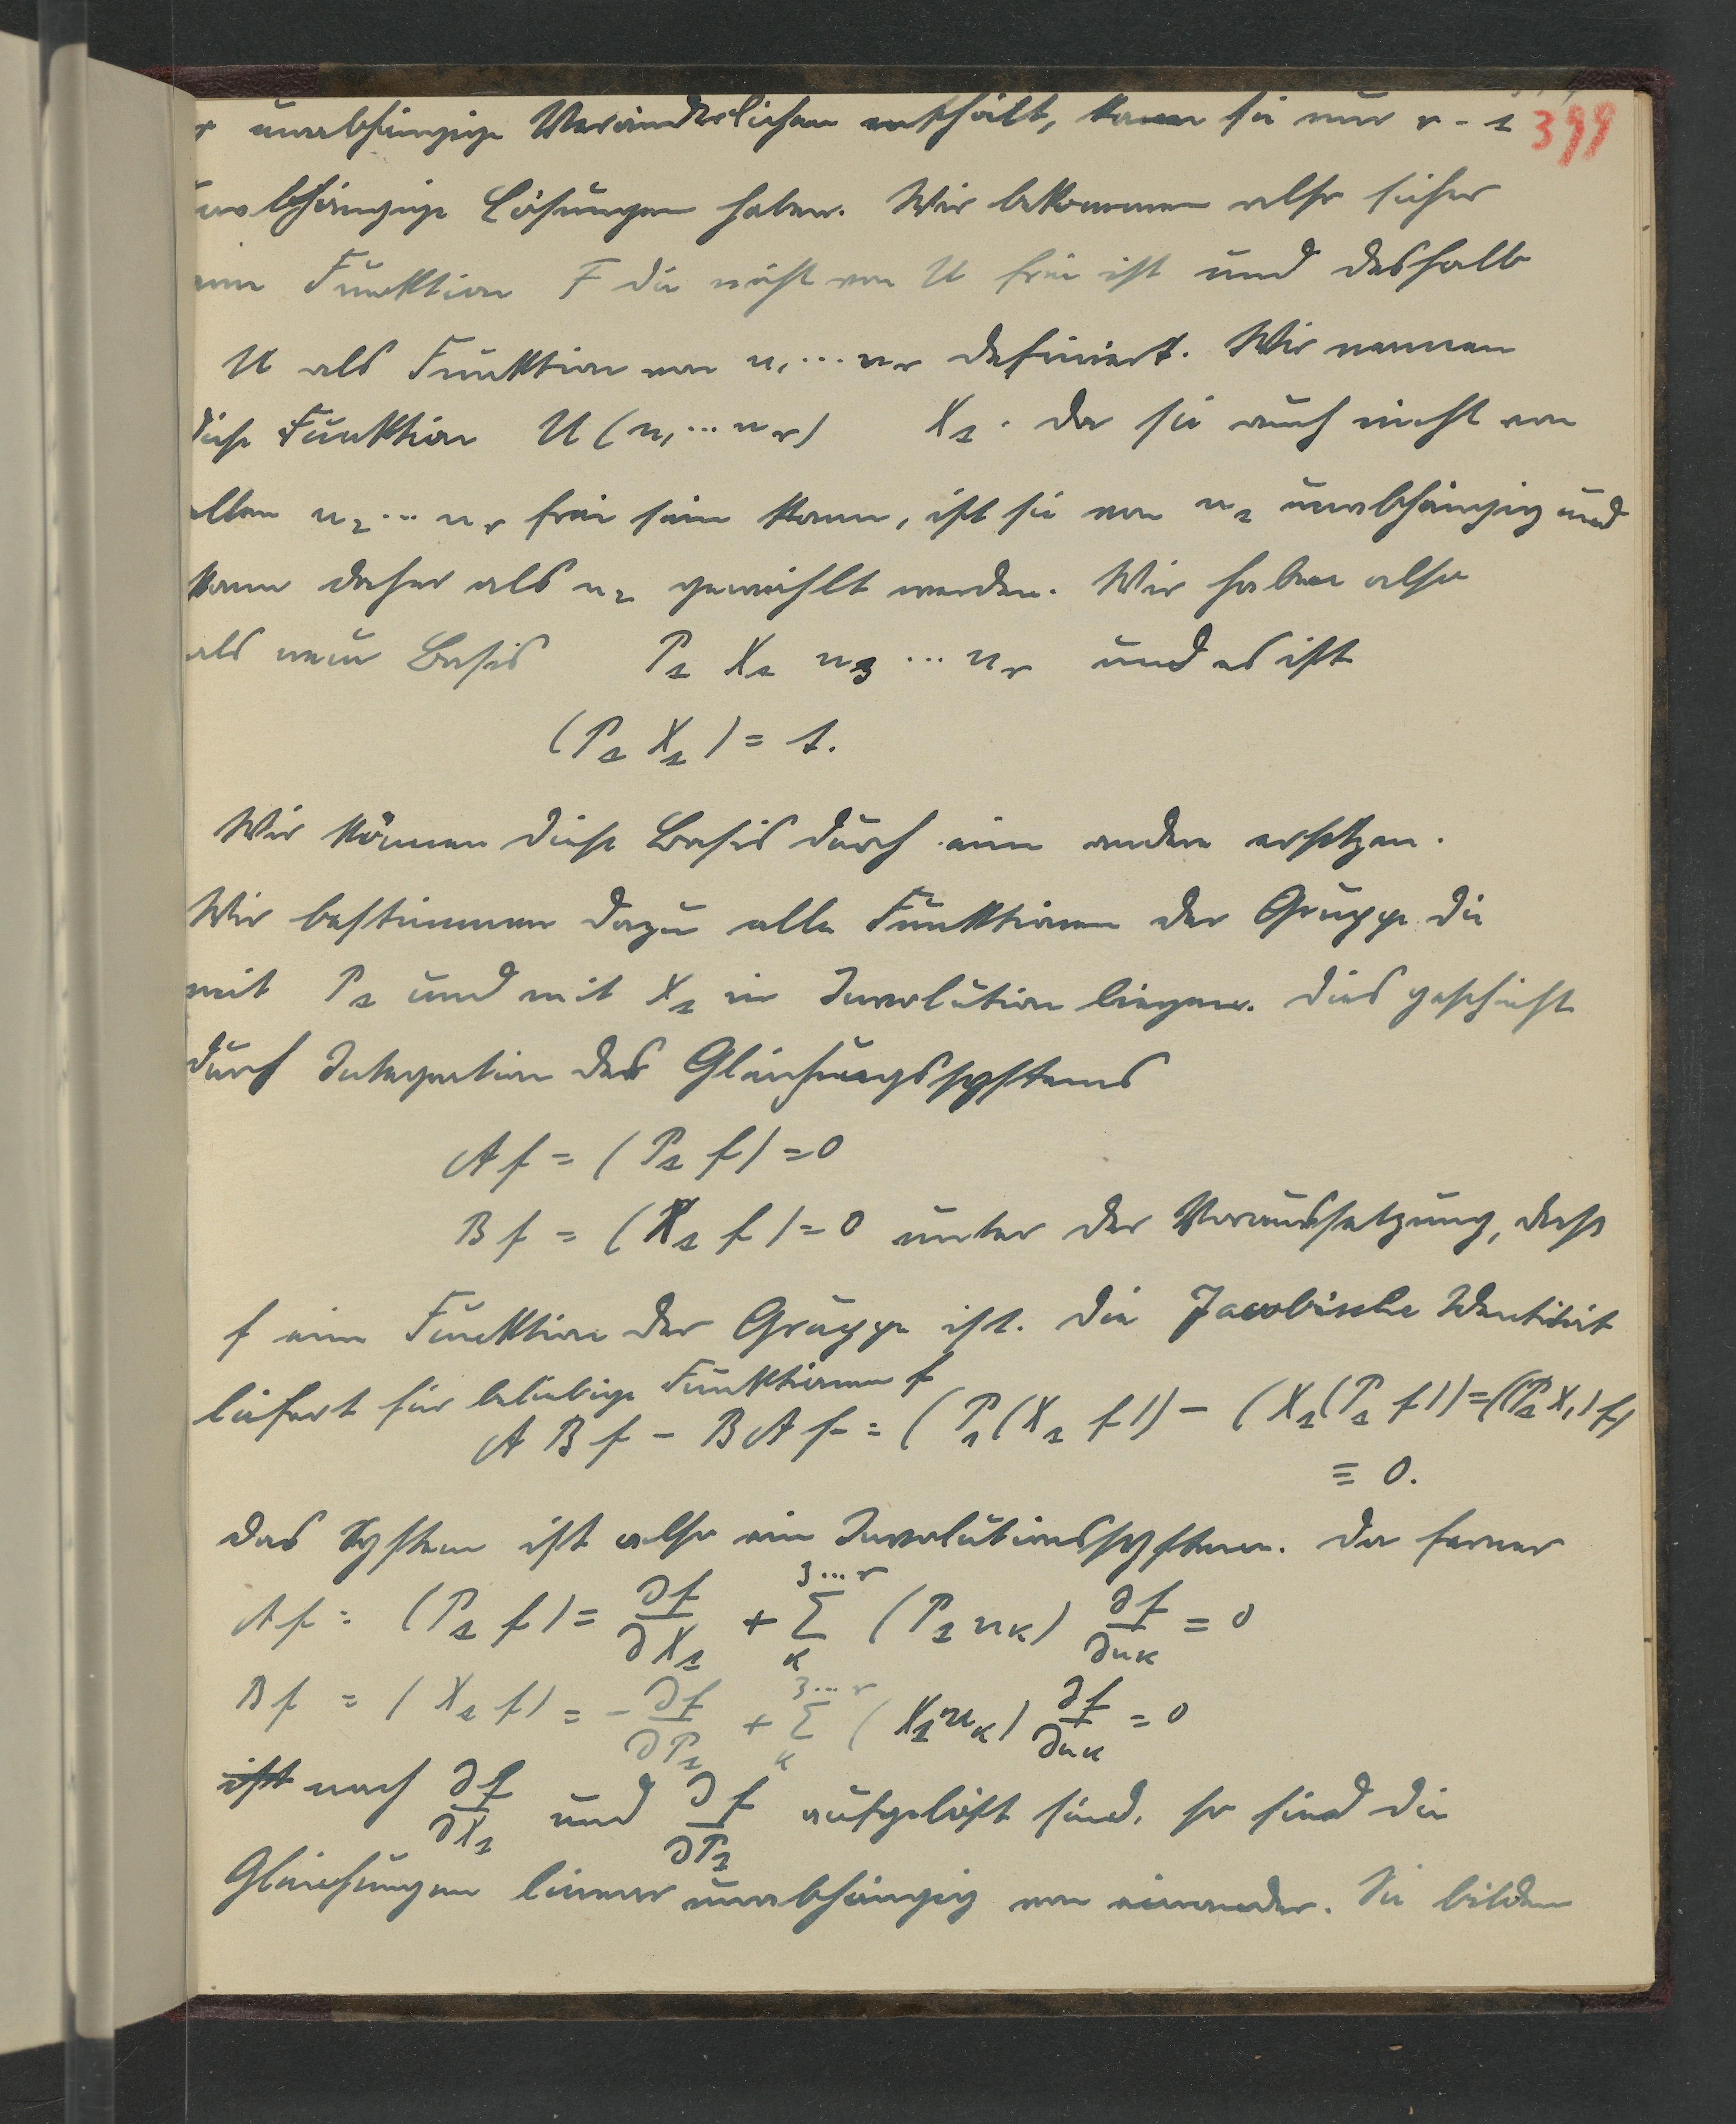 r unabhängige Veränderlichen enthält, kann sie nur r - 1 399
unabhängige Lösungen haben. Wir bekommen also sicher
eine Funktion F die nicht von U frei ist und deshalb
U als Funktion von u₁ ... uᵣ definiert. Wir nennen
diese Funktion U (u₁ ... uᵣ) X₁. Da sie auch nicht von
allen u₂ ... uᵣ frei sein kann, ist sie von u₁ unabhängig und
kann daher als u₂ gewählt werden. Wir haben also
als neue Basis P₁ X₁ u₃ ... uᵣ und es ist
(P₁ X₁) = 1.
Wir können diese Basis durch eine andere ersetzen.
Wir bestimmen dazu alle Funktionen der Gruppe die
mit P₁ und mit X₁ in Involution liegen. Dies geschieht
durch Integration des Gleichungssystems
A f = (P₁ f) = 0
B f = (X₁ f) = 0 unter der Voraussetzung, dass
f eine Funktion der Gruppe ist. Die Jacobische Identität
liefert für beliebige Funktionen f
A B f - B A f = (P₁ (X₁ f)) - (X₁ (P₁ f)) = ((P₁ X₁) f)
≡ 0.
Das System ist also ein Involutionssystem. Da ferner
A f = (P₁ f) = ∂f/∂X₁ + Σₖ^{3...r} (P₁ uₖ) ∂f/∂uₖ = 0
B f = (X₁ f) = - ∂f/∂P₁ + Σₖ^{3...r} (X₁ uₖ) ∂f/∂uₖ = 0
ist nach ∂f/∂X₁ und ∂f/∂P₁ aufgelöst sind, so sind die
Gleichungen linear unabhängig von einander. Sie bilden